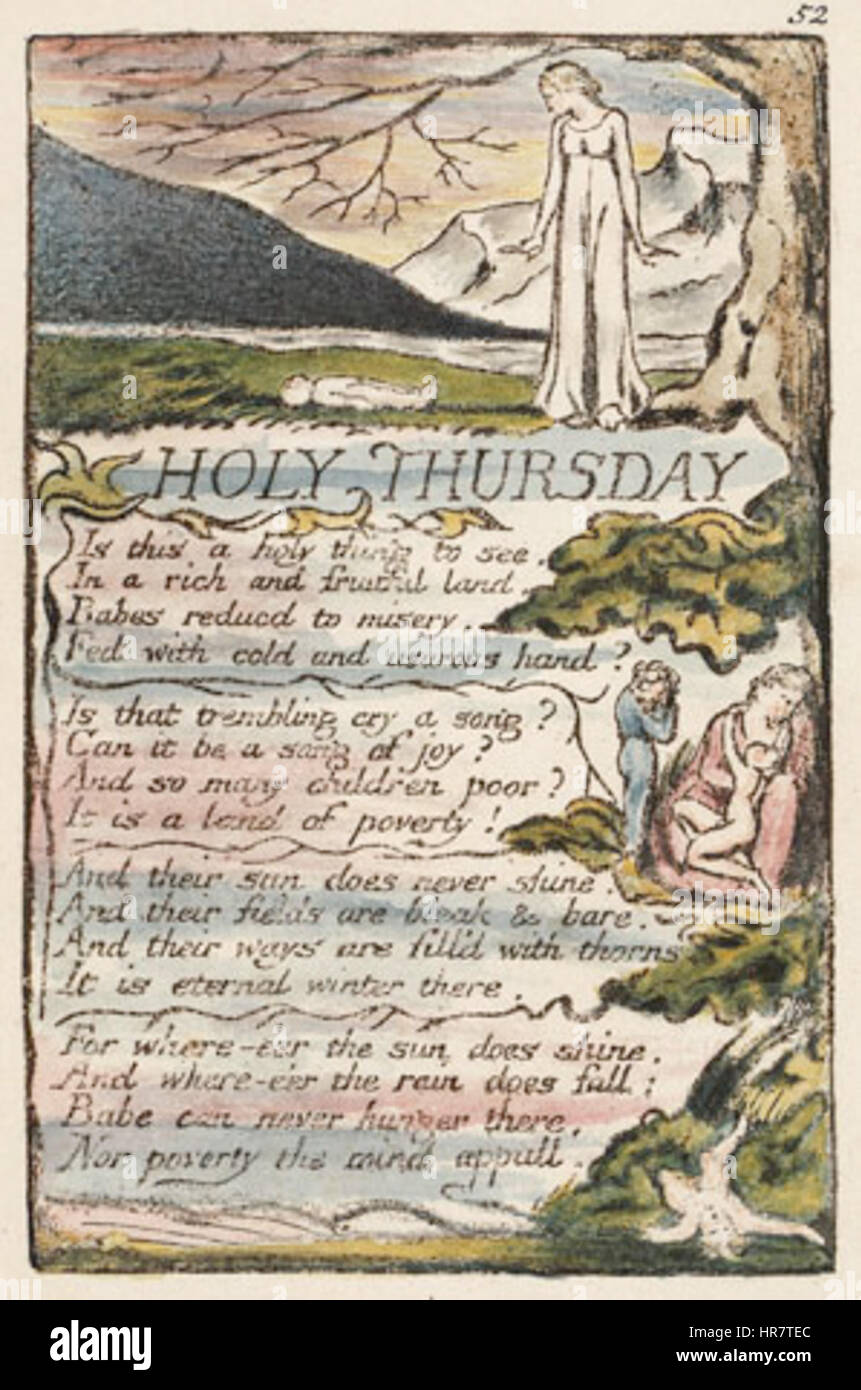 52
HOLY THURSDAY
Is this a holy thing to see.
In a rich and fruitful land.
Babes reducd to misery.
Fed with cold and usurous hand?
Is that trembling cry a song?
Can it be a song of joy?
And so many children poor?
It is a land of poverty!
And their sun does never shine.
And their fields are bleak & bare.
And their ways are fill'd with thorns
It is eternal winter there.
For where-e'er the sun does shine.
And where-e'er the rain does fall:
Babe can never hunger there,
Nor poverty the mind appall.
alamy stock photo
HR7TEC
www.alamy.com